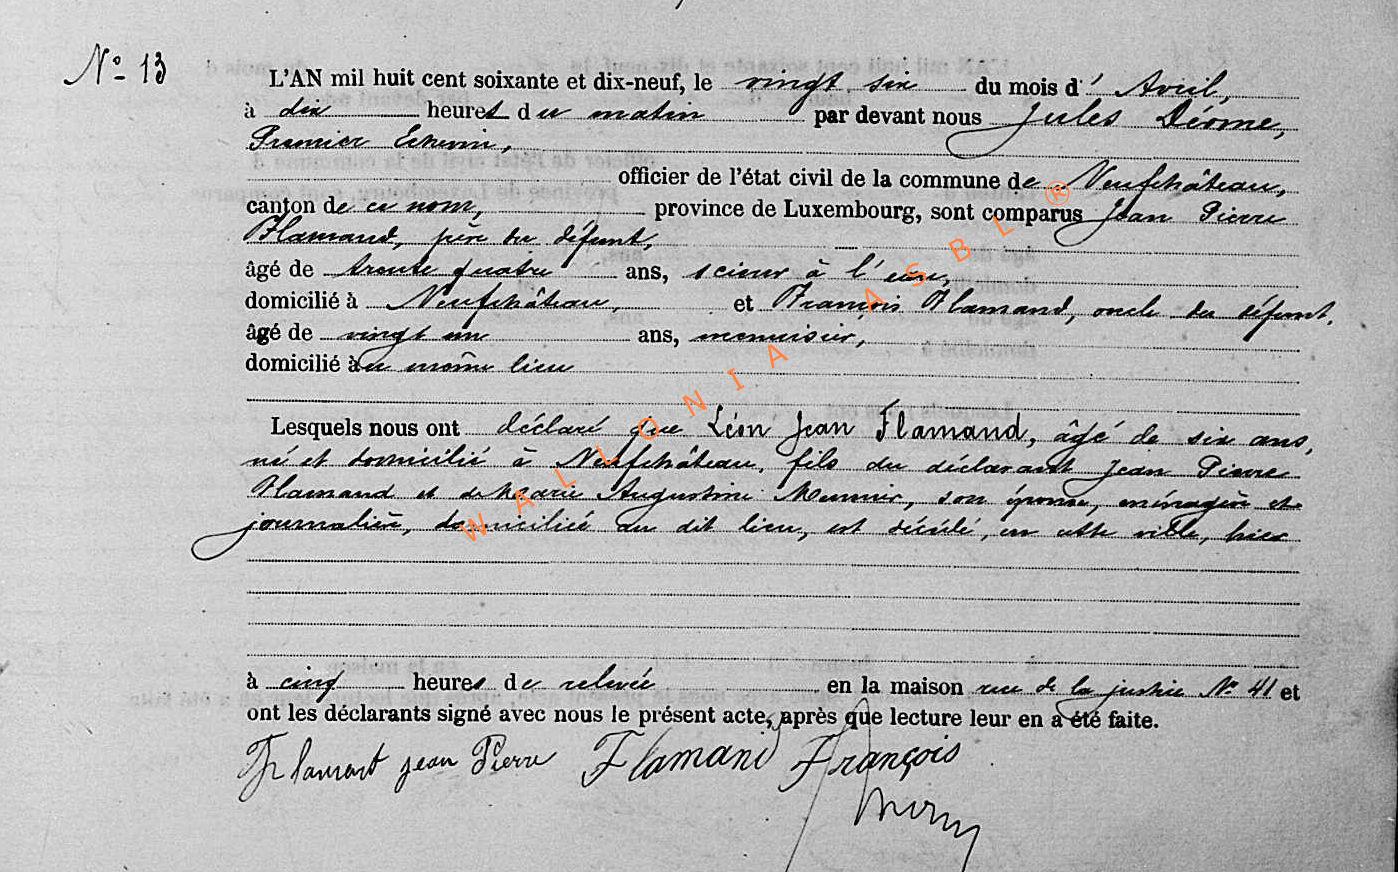 N° 13
L'AN mil huit cent soixante et dix-neuf, le vingt six du mois d' Avril,
à dix heures du matin par devant nous Jules Dérome,
Premier Echevin,
officier de l'état civil de la commune de Neufchâteau,
canton de ce nom, province de Luxembourg, sont comparus Jean Pierre
Flamand, père du défunt,
âgé de trente quatre ans, scieur à l'eau,
domicilié à Neufchâteau, et François Flamand, oncle du défunt,
âgé de vingt un ans, menuisier,
domicilié au même lieu
Lesquels nous ont déclaré que Léon Jean Flamand, âgé de six ans,
né et domicilié à Neufchâteau, fils du déclarant Jean Pierre
Flamand et de Marie Augustine Meunier, son épouse, ménagère et
journalière, domiciliés au dit lieu, est décédé, en cette ville, hier
à cinq heures de relevée en la maison rue de la justice N° 41 et
ont les déclarants signé avec nous le présent acte, après que lecture leur en a été faite.
Flamant jean Pierre Flamand François
WALLONIA ASBL ®